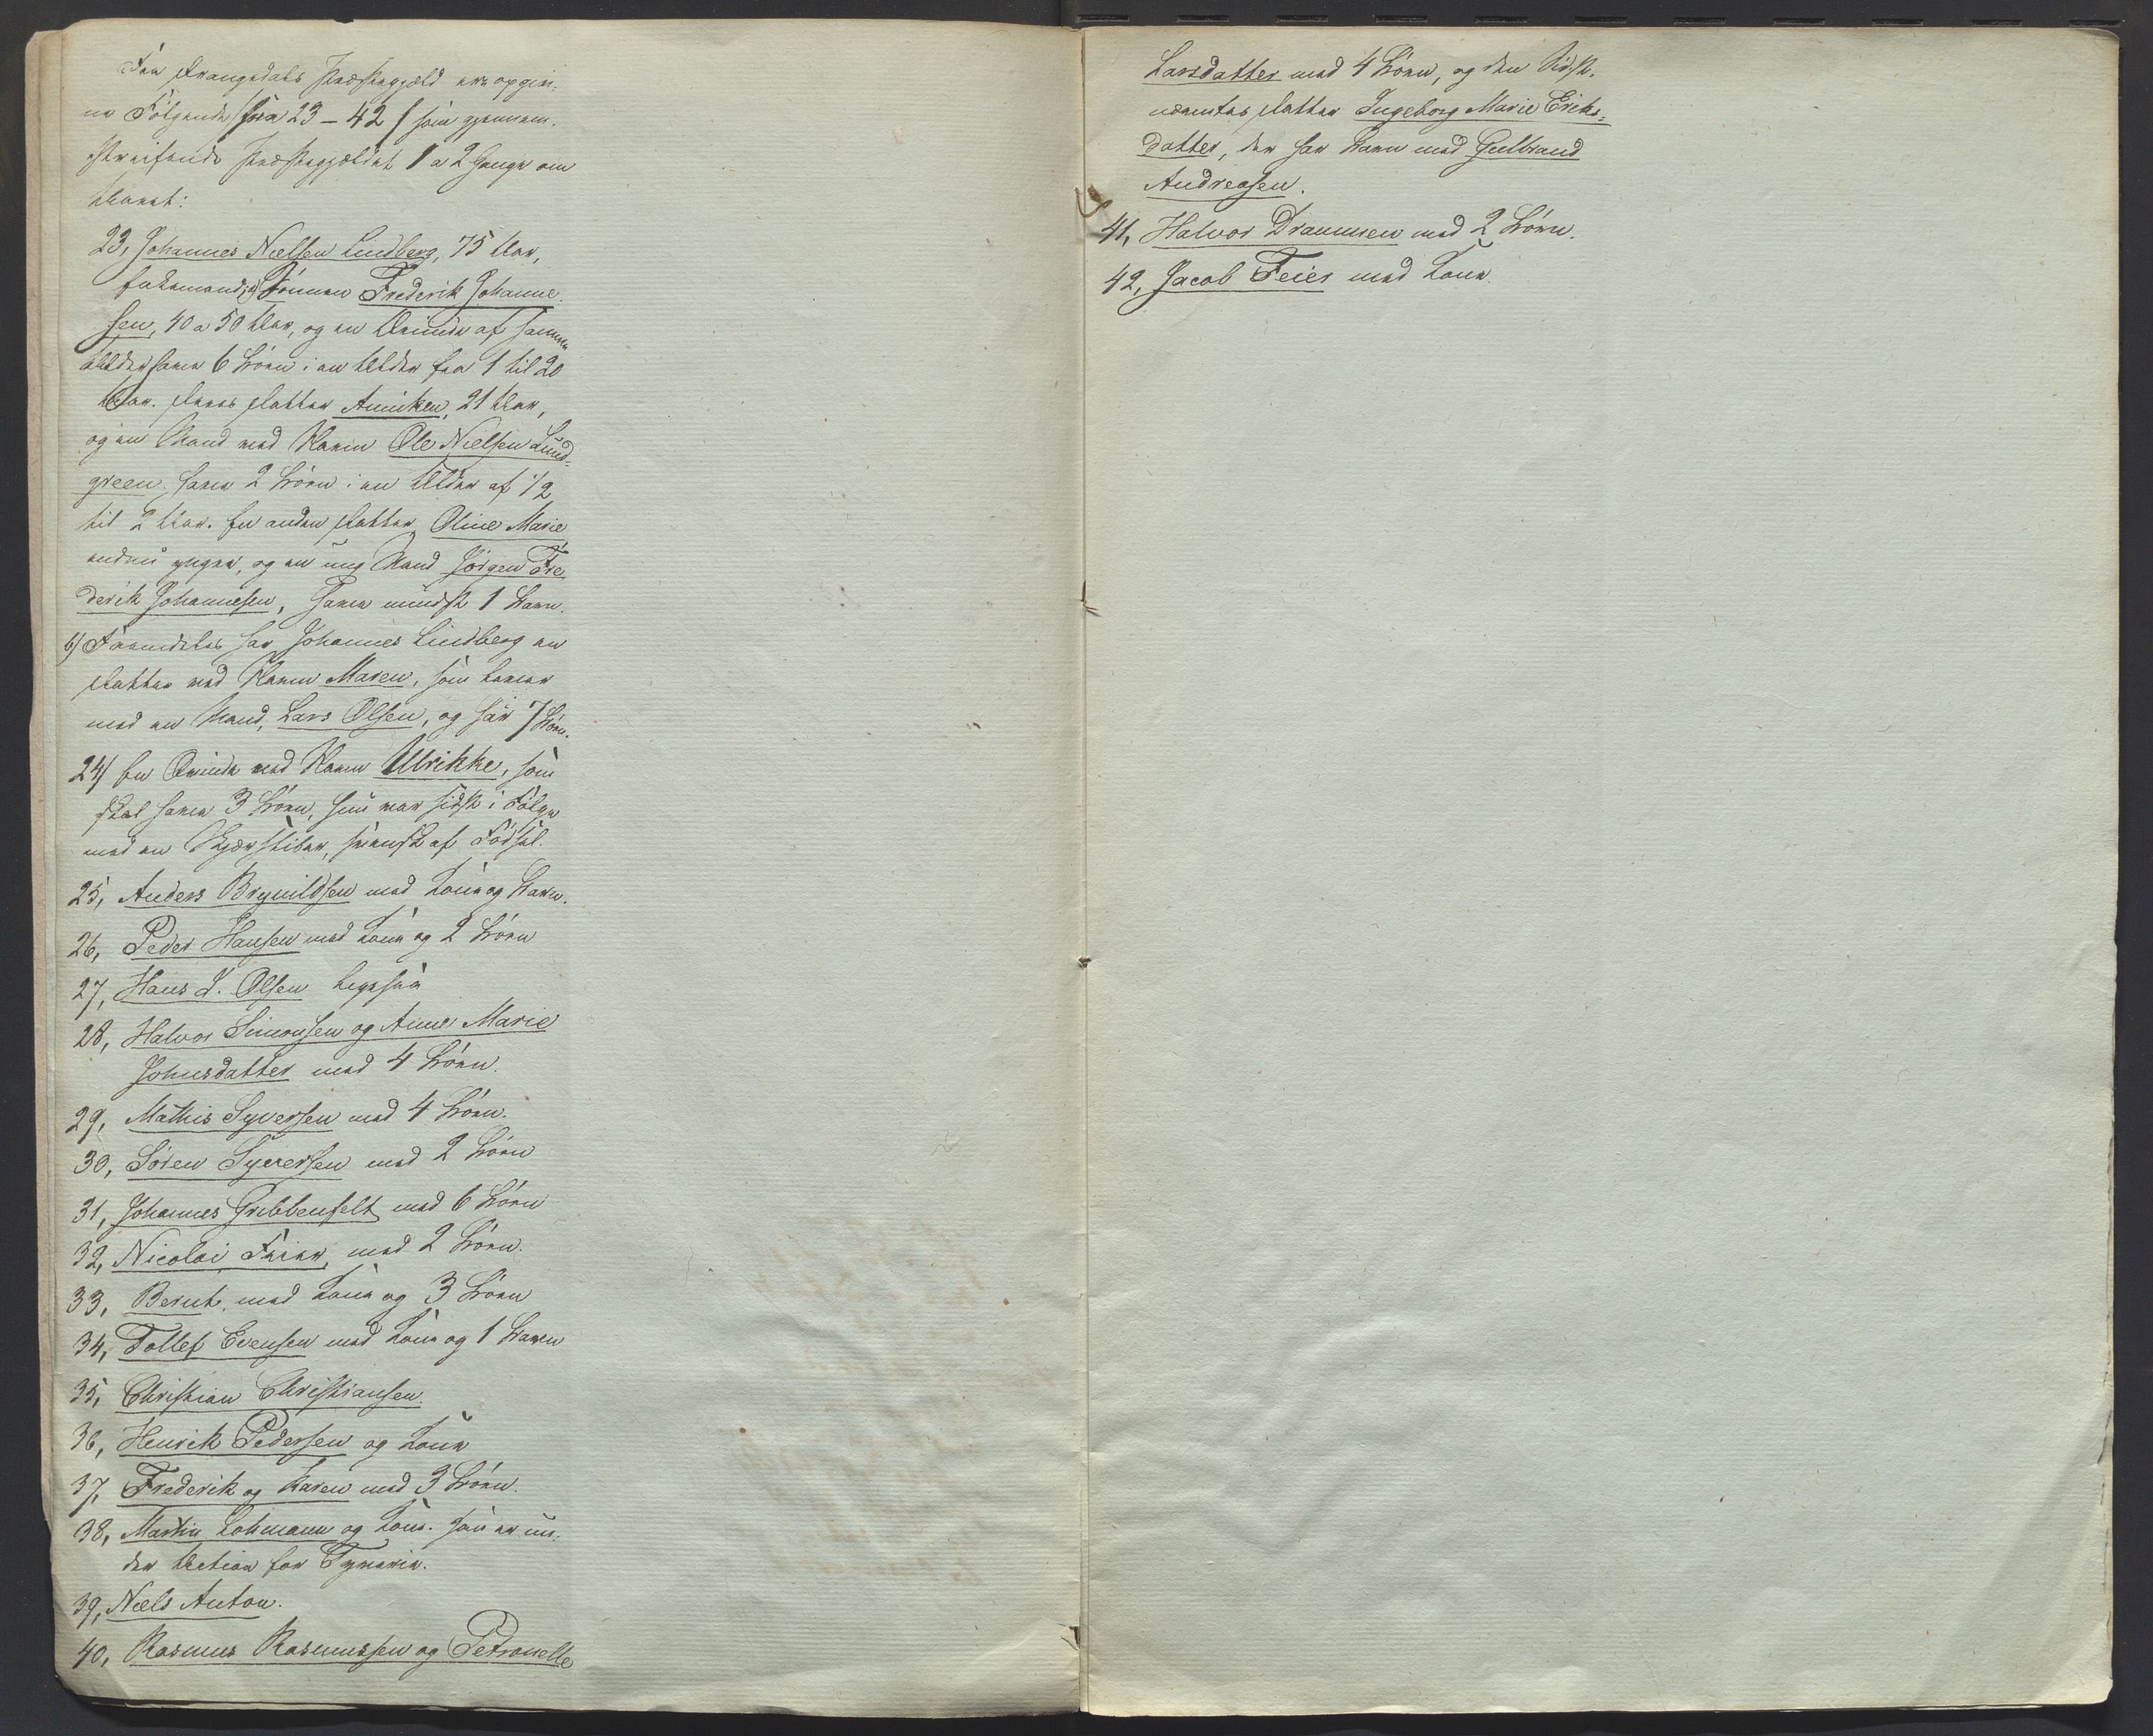 Fra Drangedals Præstegjæld ere opgiv-
ne Følgende (fra 23-42) som gjennem-
streifende Præstegjældet 1 a 2 Gange om
Aaret:
23, Johannes Nielsen Lindberg, 75 Aar,
Enkemand; a) Sønnen Frederik Johanne-
sen, 40 a 50 Aar, og en Kvinde af samme
Alder have 6 Børn i en Alder fra 1 til 20
Aar. Deres Datter Anniken, 21 Aar,
og en Mand ved Navn Ole Nielsen Lund-
green have 2 Børn i en Alder af 1/2
til 2 Aar. En anden Datter Oline Marie
endnu yngre, og en ung Mand Jørgen Fre
derik Johannesen, have mindst 1 Barn.
b) Fremdeles har Johannes Lindberg en
Datter ved Navn Maren, som lever
med en Mand, Lars Olsen, og har 7 Børn.
24) En Qvinde ved Navn Ulrikke, som
skal have 3 Børn, hun var sidst i Følge
med en Skjærsliber, svensk af Fødsel.
25, Anders Brynildsen med Kone og Barn.
26, Peder Hansen med Kone og 2 Børn
27, Hans L. Olsen ligesaa
28, Halvor Simonsen og Anne Marie
Johnsdatter med 4 Børn.
29, Mathis Syversen med 4 Børn.
30, Søren Syversen med 2 Børn
31, Johannes Gribbenfelt med 6 Børn
32, Nicolai Feier, med 2 Børn.
33, Bernt, med Kone og 3 Børn
34, Tollef Evensen med Kone og 1 Barn
35, Christian Christiansen.
36, Henrik Pedersen og Kone
37, Frederik og Karen med 3 Børn.
38, Martin Lohmann og Kone. han er un-
der Action for Tyveri.
39, Niels Anton.
40, Rasmus Rasmussen og Petronelle
Larsdatter med 4 Børn, og den Sidst-
nævntes Datter Ingeborg Marie Eriks-
datter, der har Barn med Gulbrand
Andreasen.
41, Halvor Drammen med 2 Børn.
42, Jacob Feier med Kone.